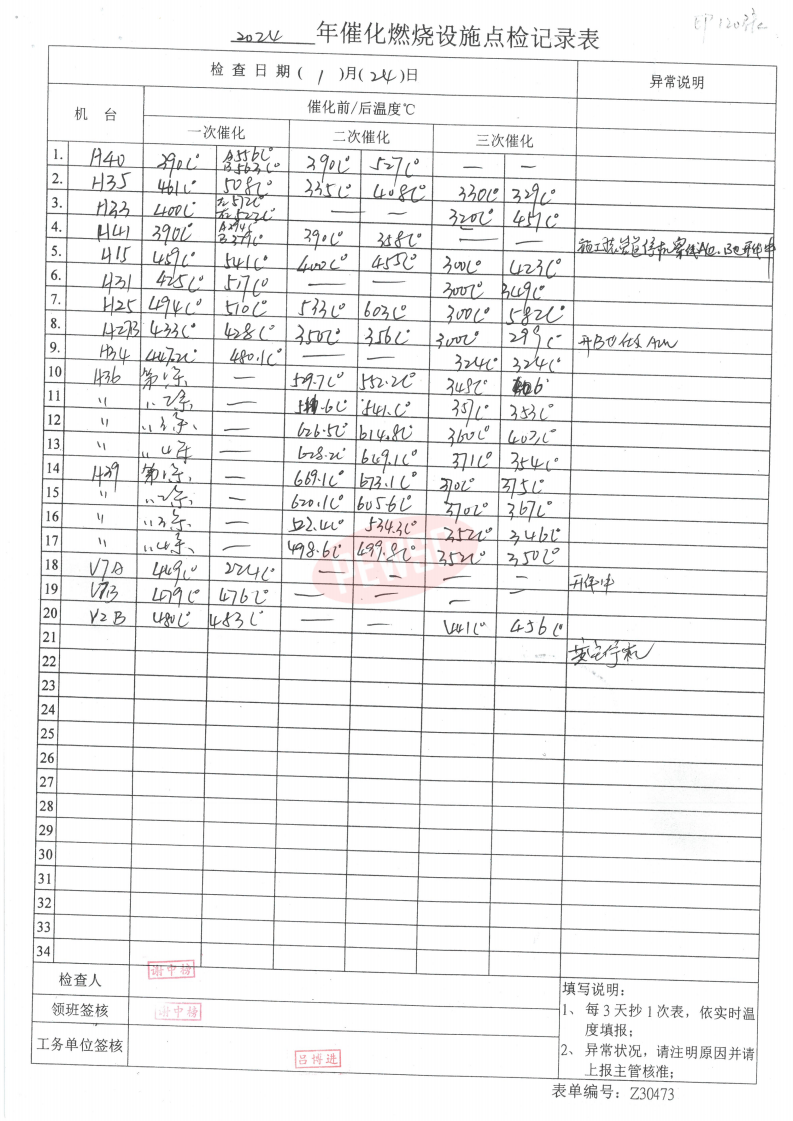 印120张
2024 年催化燃烧设施点检记录表
检查日期( 1 )月(24)日 异常说明
机 台 催化前/后温度℃
一次催化 二次催化 三次催化
1. H40 390℃ A556℃ B563℃ 390℃ 527℃ — —
2. H35 461℃ 508℃ 335℃ 408℃ 330℃ 329℃
3. H33 400℃ 左512℃ 右523℃ — — 320℃ 457℃
4. H41 390℃ 390℃ 358℃ — —
5. H15 459℃ 541℃ 400℃ 455℃ 300℃ 423℃
6. H31 425℃ 517℃ — — 300℃ 349℃
7. H25 494℃ 510℃ 533℃ 603℃ 300℃ 582℃
8. 433℃ 428℃ 350℃ 356℃ 300℃ 299℃
9. H34 447.2℃ 480.1℃ — — 324℃ 324℃
10 H36 第1条 — 529.7℃ 552.2℃ 348℃
11 〃 〃2条 — 541.1℃ 357℃ 353℃
12 〃 〃3条 — 626.5℃ 614.8℃ 360℃ 402℃
13 〃 〃4条 — 628.2℃ 649.1℃ 371℃ 354℃
14 H39 第1条 — 669.1℃ 673.1℃ 370℃ 375℃
15 〃 〃2条 — 620.1℃ 605.6℃ 370℃ 367℃
16 〃 〃3条 — 522.4℃ 534.3℃ 352℃ 346℃
17 〃 〃4条 — 498.6℃ 499.8℃ 352℃ 350℃
18 V7A 449℃ 224℃ — — — — 开停中
19 V7B 479℃ 476℃ — — — —
20 V2B 480℃ 483℃ — — 441℃ 456℃
21
22
23
24
25
26
27
28
29
30
31
32
33
34
检查人 谢中榜
领班签核 谢中榜
工务单位签核 吕博进
填写说明：
1、每3天抄1次表，依实时温
度填报；
2、异常状况，请注明原因并请
上报主管核准；
表单编号：Z30473